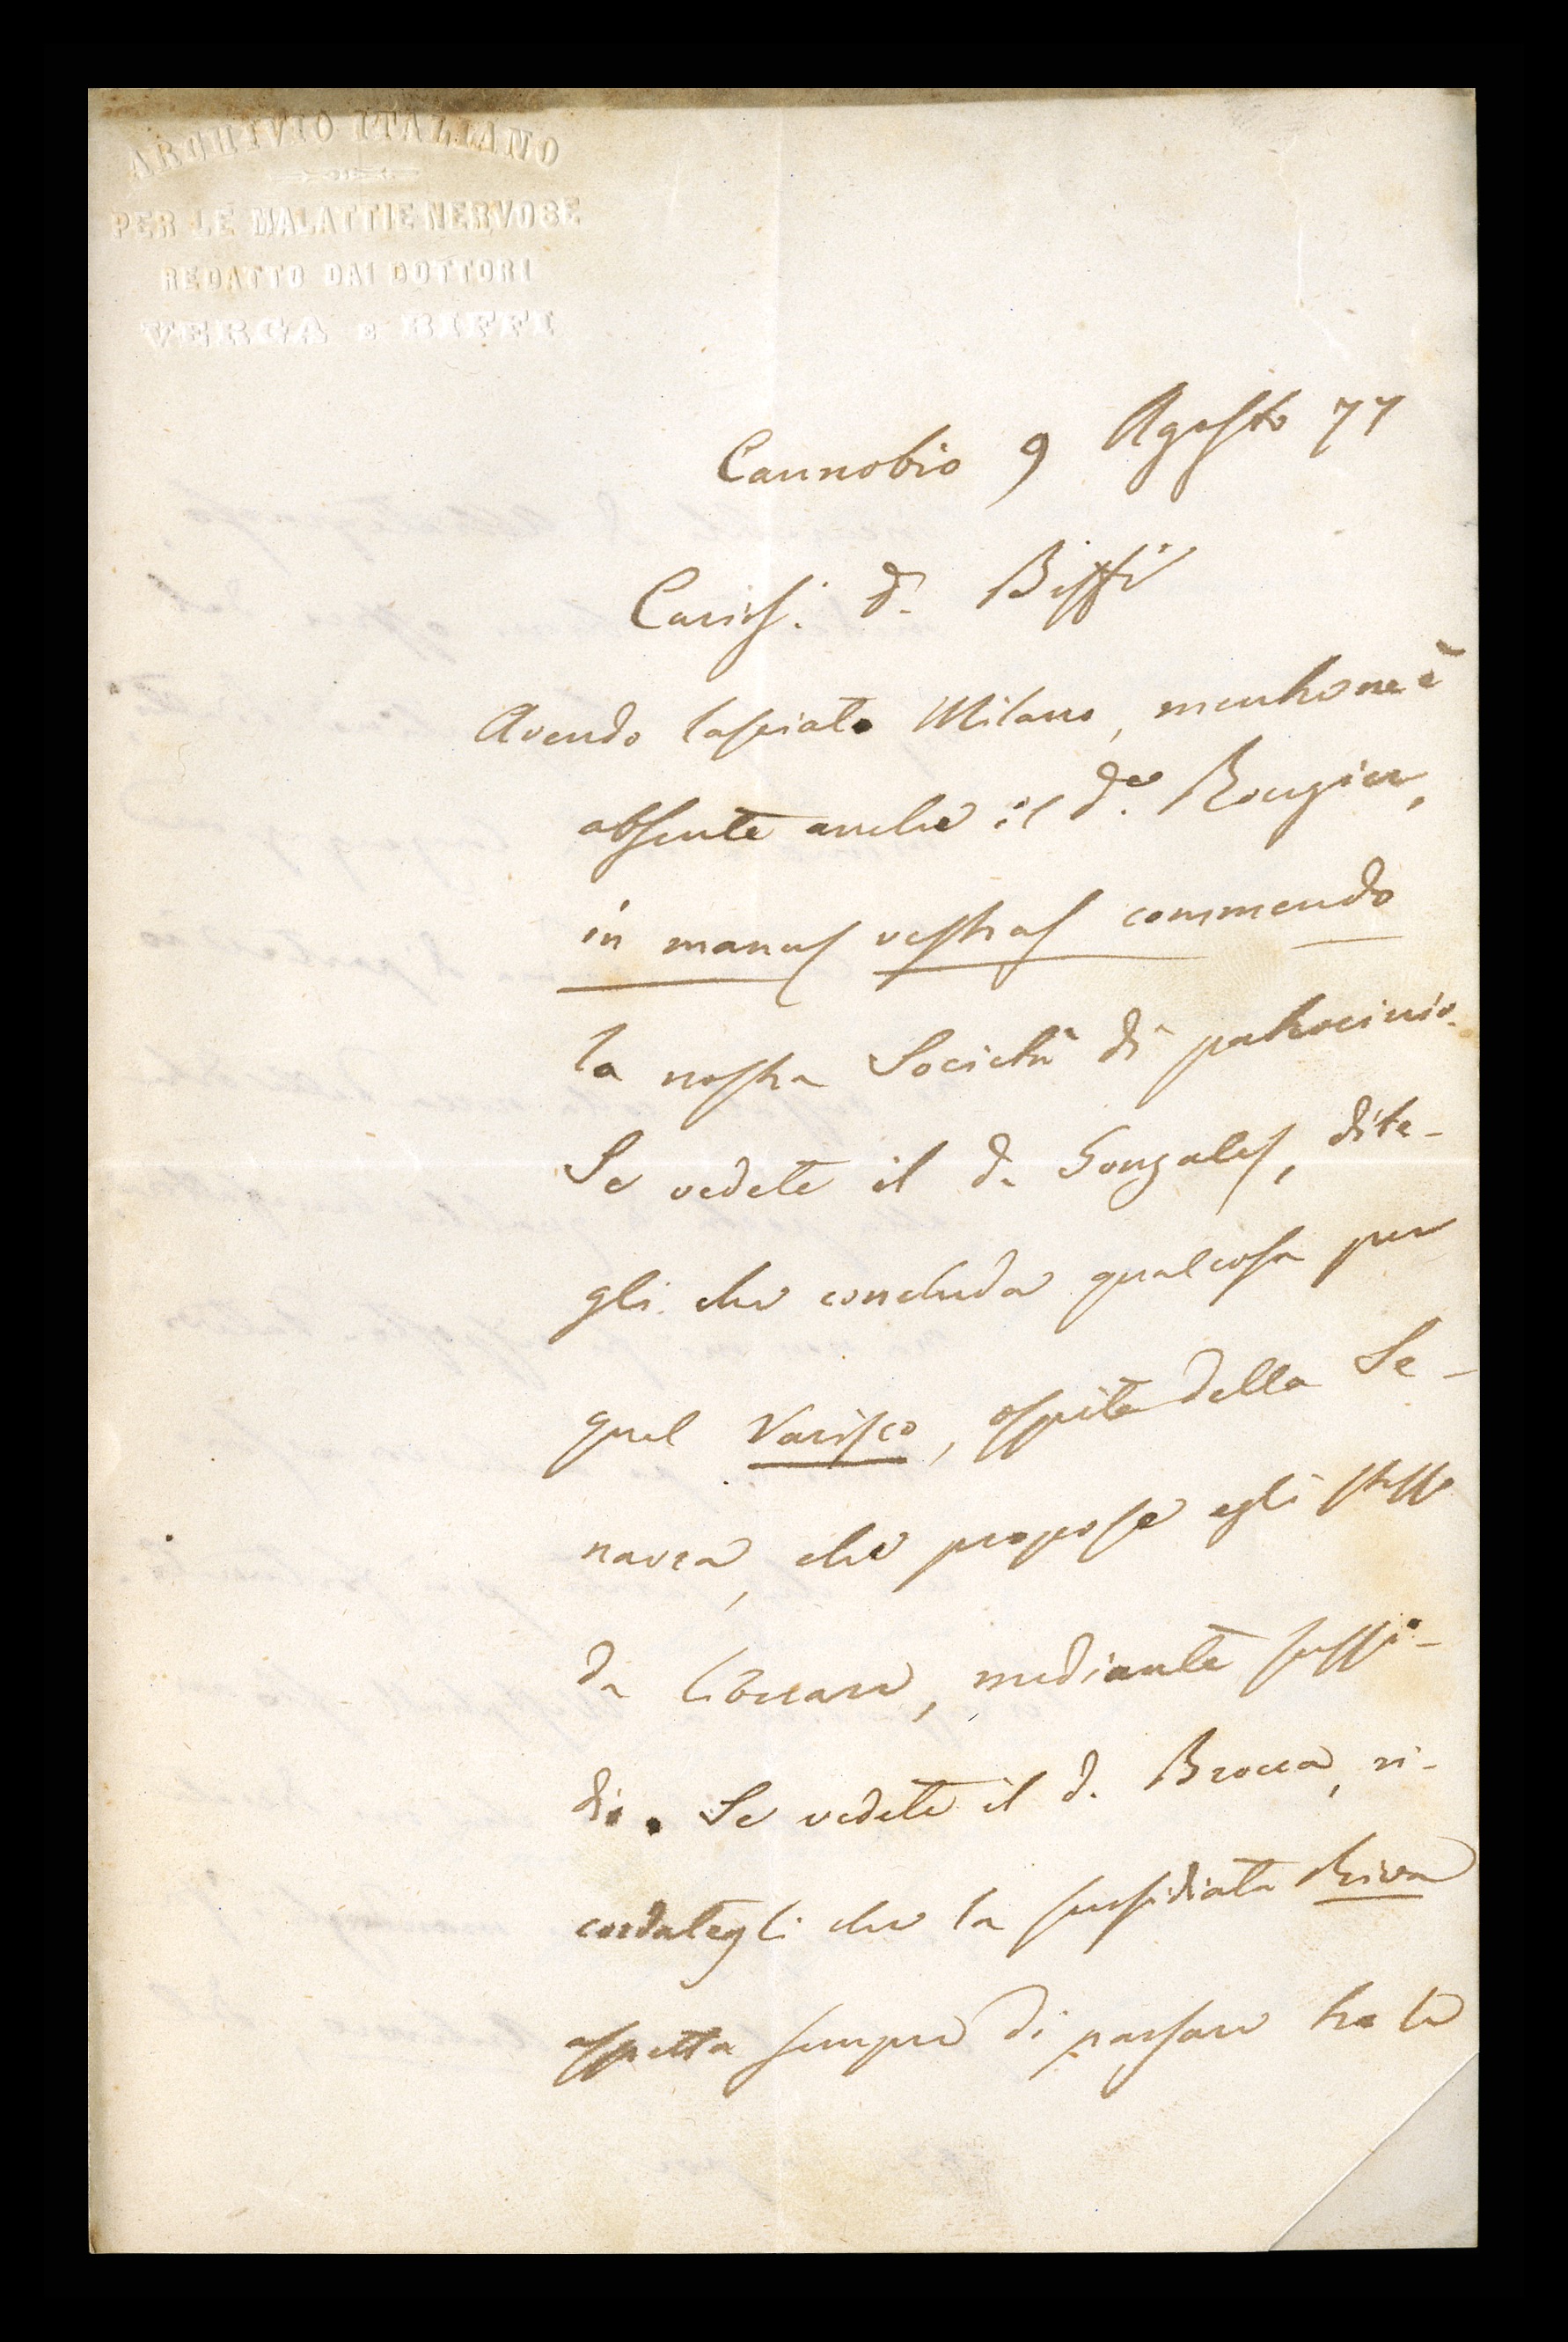 ARCHIVIO ITALIANO
PER LE MALATTIE NERVOSE
REDATTO DAI DOTTORI
VERGA E BIFFI
Cannobio 9 Agosto 77
Cariss. d. Biffi
Avendo lasciato Milano, mentre ne è
absente anche il d.r Rougier,
in manus vestras commendo
la nostra Società di patrocinio.
Se vedete il d. Gonzales, dite-
gli che concluda qualcosa per
quel Varisco, ospite della Se-
navra, che propose egli stesso
da liberare, mediante sussi-
di. Se vedete il d. Brocca, ri-
cordategli che la sussidiata Riva
aspetta sempre di passare tra le